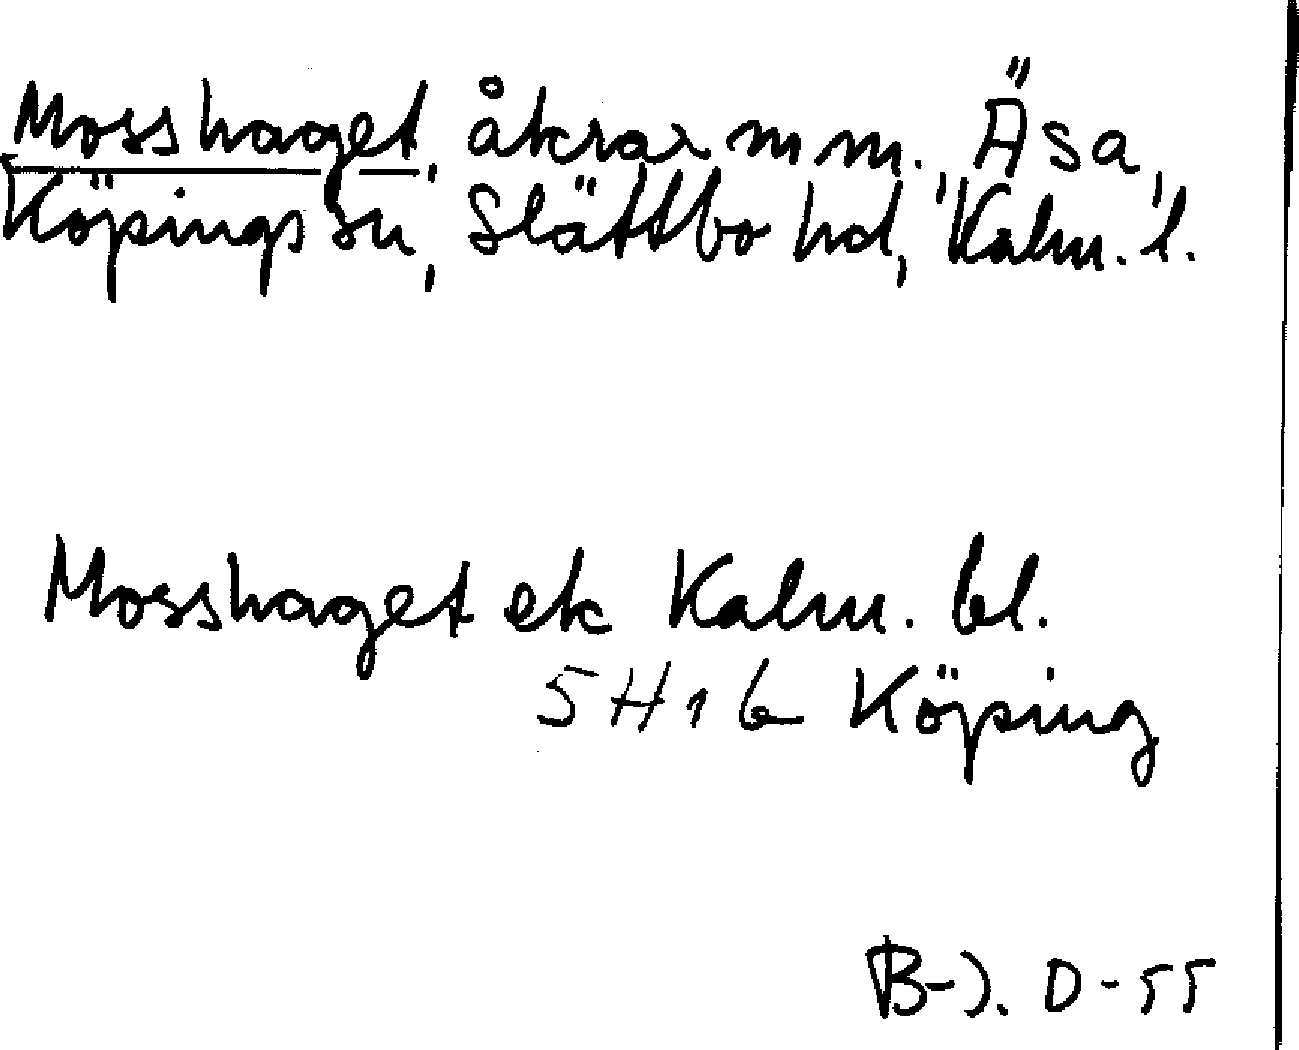 Mosshaget, åkrar mm. Äsa,
Köpings sn, Slättbo hd, Kalm. l.
Mosshaget ek Kalm. bl.
5 H 1 b Köping
B-J. D-55